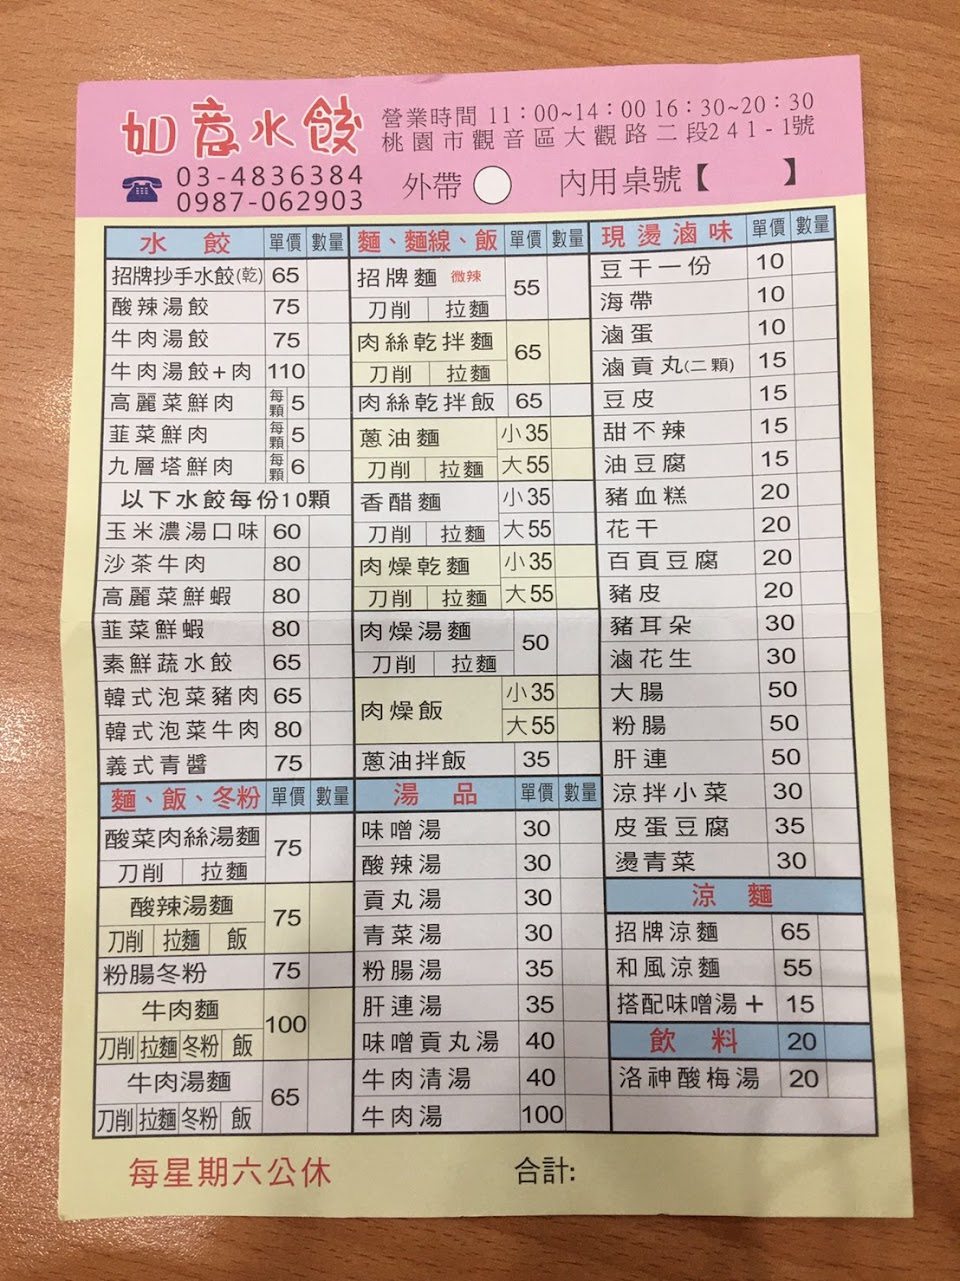 如意水餃
營業時間 11：00~14：00 16：30~20：30
桃園市觀音區大觀路二段241-1號
03-4836384
0987-062903
外帶
內用桌號【 】
水餃 單價 數量
招牌抄手水餃(乾) 65
酸辣湯餃 75
牛肉湯餃 75
牛肉湯餃+肉 110
高麗菜鮮肉 每顆 5
韭菜鮮肉 每顆 5
九層塔鮮肉 每顆 6
以下水餃每份10顆
玉米濃湯口味 60
沙茶牛肉 80
高麗菜鮮蝦 80
韭菜鮮蝦 80
素鮮蔬水餃 65
韓式泡菜豬肉 65
韓式泡菜牛肉 80
義式青醬 75
麵、飯、冬粉 單價 數量
酸菜肉絲湯麵 75
刀削 拉麵
酸辣湯麵 75
刀削 拉麵 飯
粉腸冬粉 75
牛肉麵 100
刀削 拉麵 冬粉 飯
牛肉湯麵 65
刀削 拉麵 冬粉 飯
麵、麵線、飯 單價 數量
招牌麵 微辣 55
刀削 拉麵
肉絲乾拌麵 65
刀削 拉麵
肉絲乾拌飯 65
蔥油麵 小35
刀削 拉麵 大55
香醋麵 小35
刀削 拉麵 大55
肉燥乾麵 小35
刀削 拉麵 大55
肉燥湯麵 50
刀削 拉麵
肉燥飯 小35
大55
蔥油拌飯 35
湯品 單價 數量
味噌湯 30
酸辣湯 30
貢丸湯 30
青菜湯 30
粉腸湯 35
肝連湯 35
味噌貢丸湯 40
牛肉清湯 40
牛肉湯 100
現燙滷味 單價 數量
豆干一份 10
海帶 10
滷蛋 10
滷貢丸(二顆) 15
豆皮 15
甜不辣 15
油豆腐 15
豬血糕 20
花干 20
百頁豆腐 20
豬皮 20
豬耳朵 30
滷花生 30
大腸 50
粉腸 50
肝連 50
涼拌小菜 30
皮蛋豆腐 35
燙青菜 30
涼麵
招牌涼麵 65
和風涼麵 55
搭配味噌湯＋ 15
飲料 20
洛神酸梅湯 20
每星期六公休
合計: